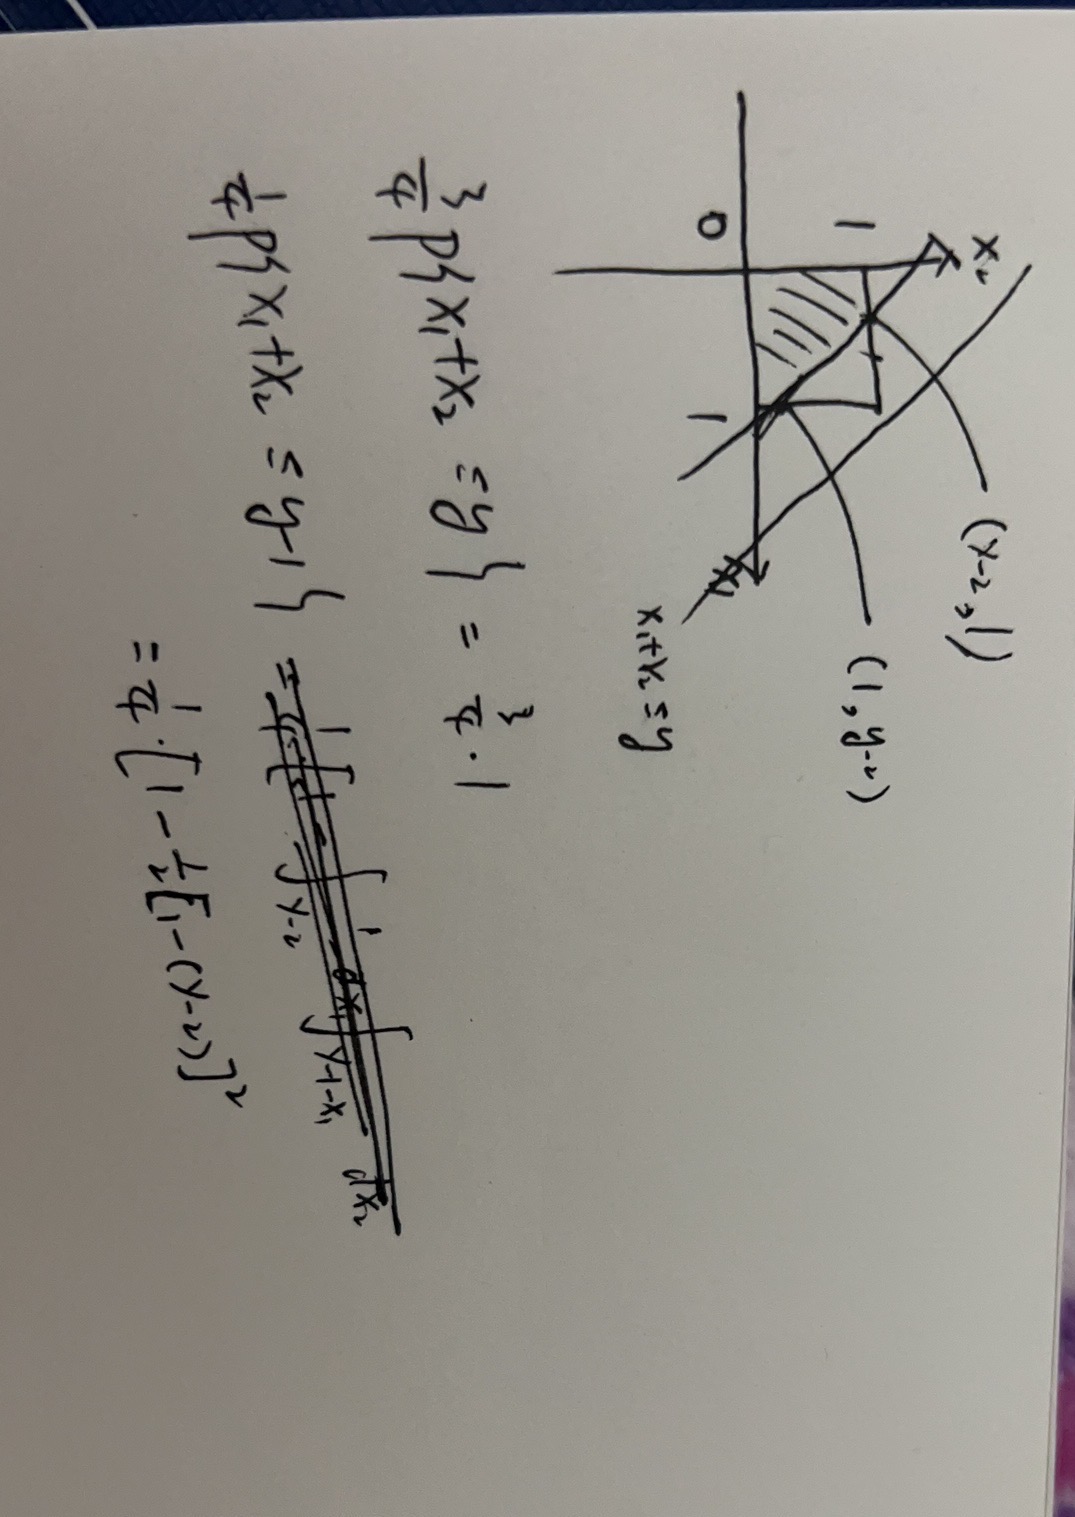 x₂
1
0
1
x₁
(y-2, 1)
(1, y-2)
x₁+x₂≤y
3/4 P{x₁+x₂ ≤ y} = 3/4 · 1
1/4 P{x₁+x₂ ≤ y-1} =
= 1/4 · [1 - 1/2[1-(y-2)]²